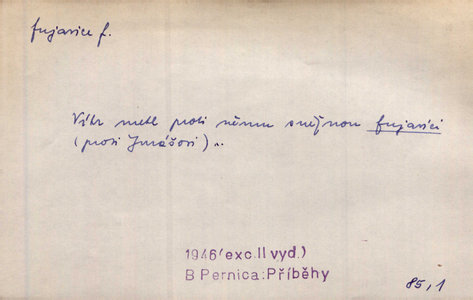 fujavice f.
Vítr metl proti němu sněžnou fujavici
(proti Jurášovi)..
1946 (exc. II vyd.)
B Pernica: Příběhy
85,1